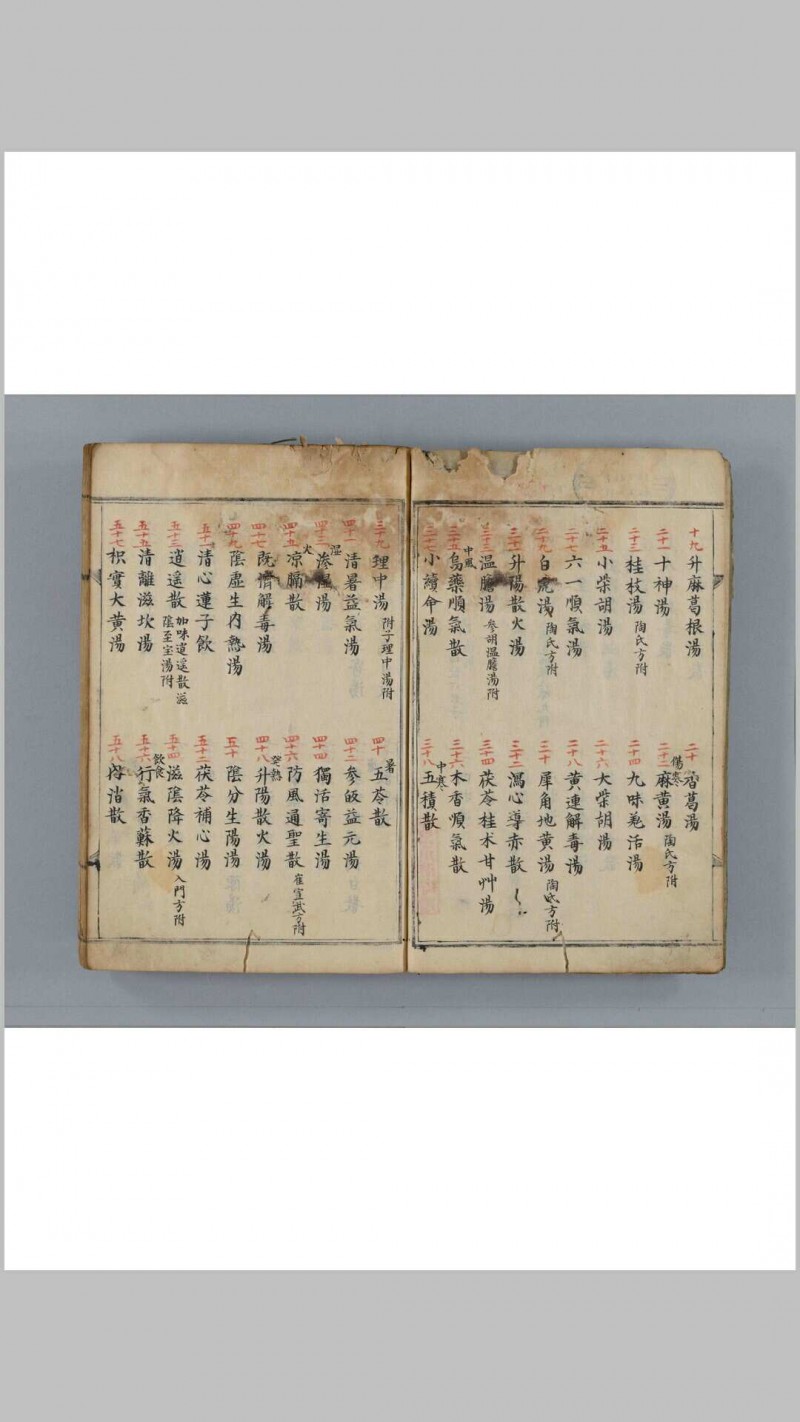 十九 升麻葛根湯
二十 香葛湯
二十一 十神湯
傷寒
二十二 麻黃湯 陶氏方附
二十三 桂枝湯 陶氏方附
二十四 九味羗活湯
二十五 小柴胡湯
二十六 大柴胡湯
二十七 六一順氣湯
二十八 黃連解毒湯
二十九 白虎湯 陶氏方附
三十 犀角地黃湯 陶氏方附
三十一 升陽散火湯
三十二 瀉心導赤散
三十三 温膽湯 參胡温膽湯附
三十四 茯苓桂木甘艸湯
中風
三十五 烏藥順氣散
三十六 木香順氣散
三十七 小續命湯
中寒
三十八 五積散
三十九 理中湯 附子理中湯附
暑
四十 五苓散
四十一 清暑益氣湯
四十二 參㱕益元湯
湿
四十三 滲湿湯
四十四 獨活寄生湯
火
四十五 凉膈散
四十六 防風通聖散 崔宣武方附
四十七 既濟解毒湯
四十八 升陽散火湯
四十九 陰虛生内熱湯
五十 陰分生陽湯
五十一 清心蓮子飲
五十二 茯苓補心湯
五十三 逍遥散 加味逍遥散滋
陰至宝湯附
五十四 滋陰降火湯 入門方附
五十五 清離滋坎湯
飲食
五十六 行氣香蘇散
五十七 枳實大黃湯
五十八 内消散